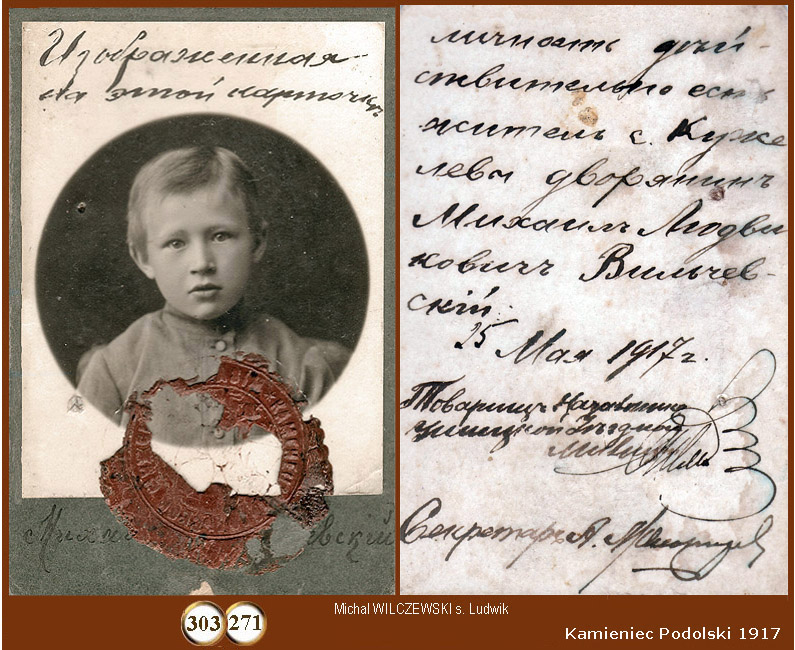 Изображенная
на этой карточкѣ
личность дѣй-
ствительно есть
житель с. Куже
левы дворянинъ
Михаилъ Людви
ковичъ Вильчев-
скій.
25 Мая 1917 г.
Товарищъ Начальника
Ушицкой Уѣздной
Милиціи
Секретарь А.
Миха вскій
303 271
Michał WILCZEWSKI s. Ludwik
Kamieniec Podolski 1917